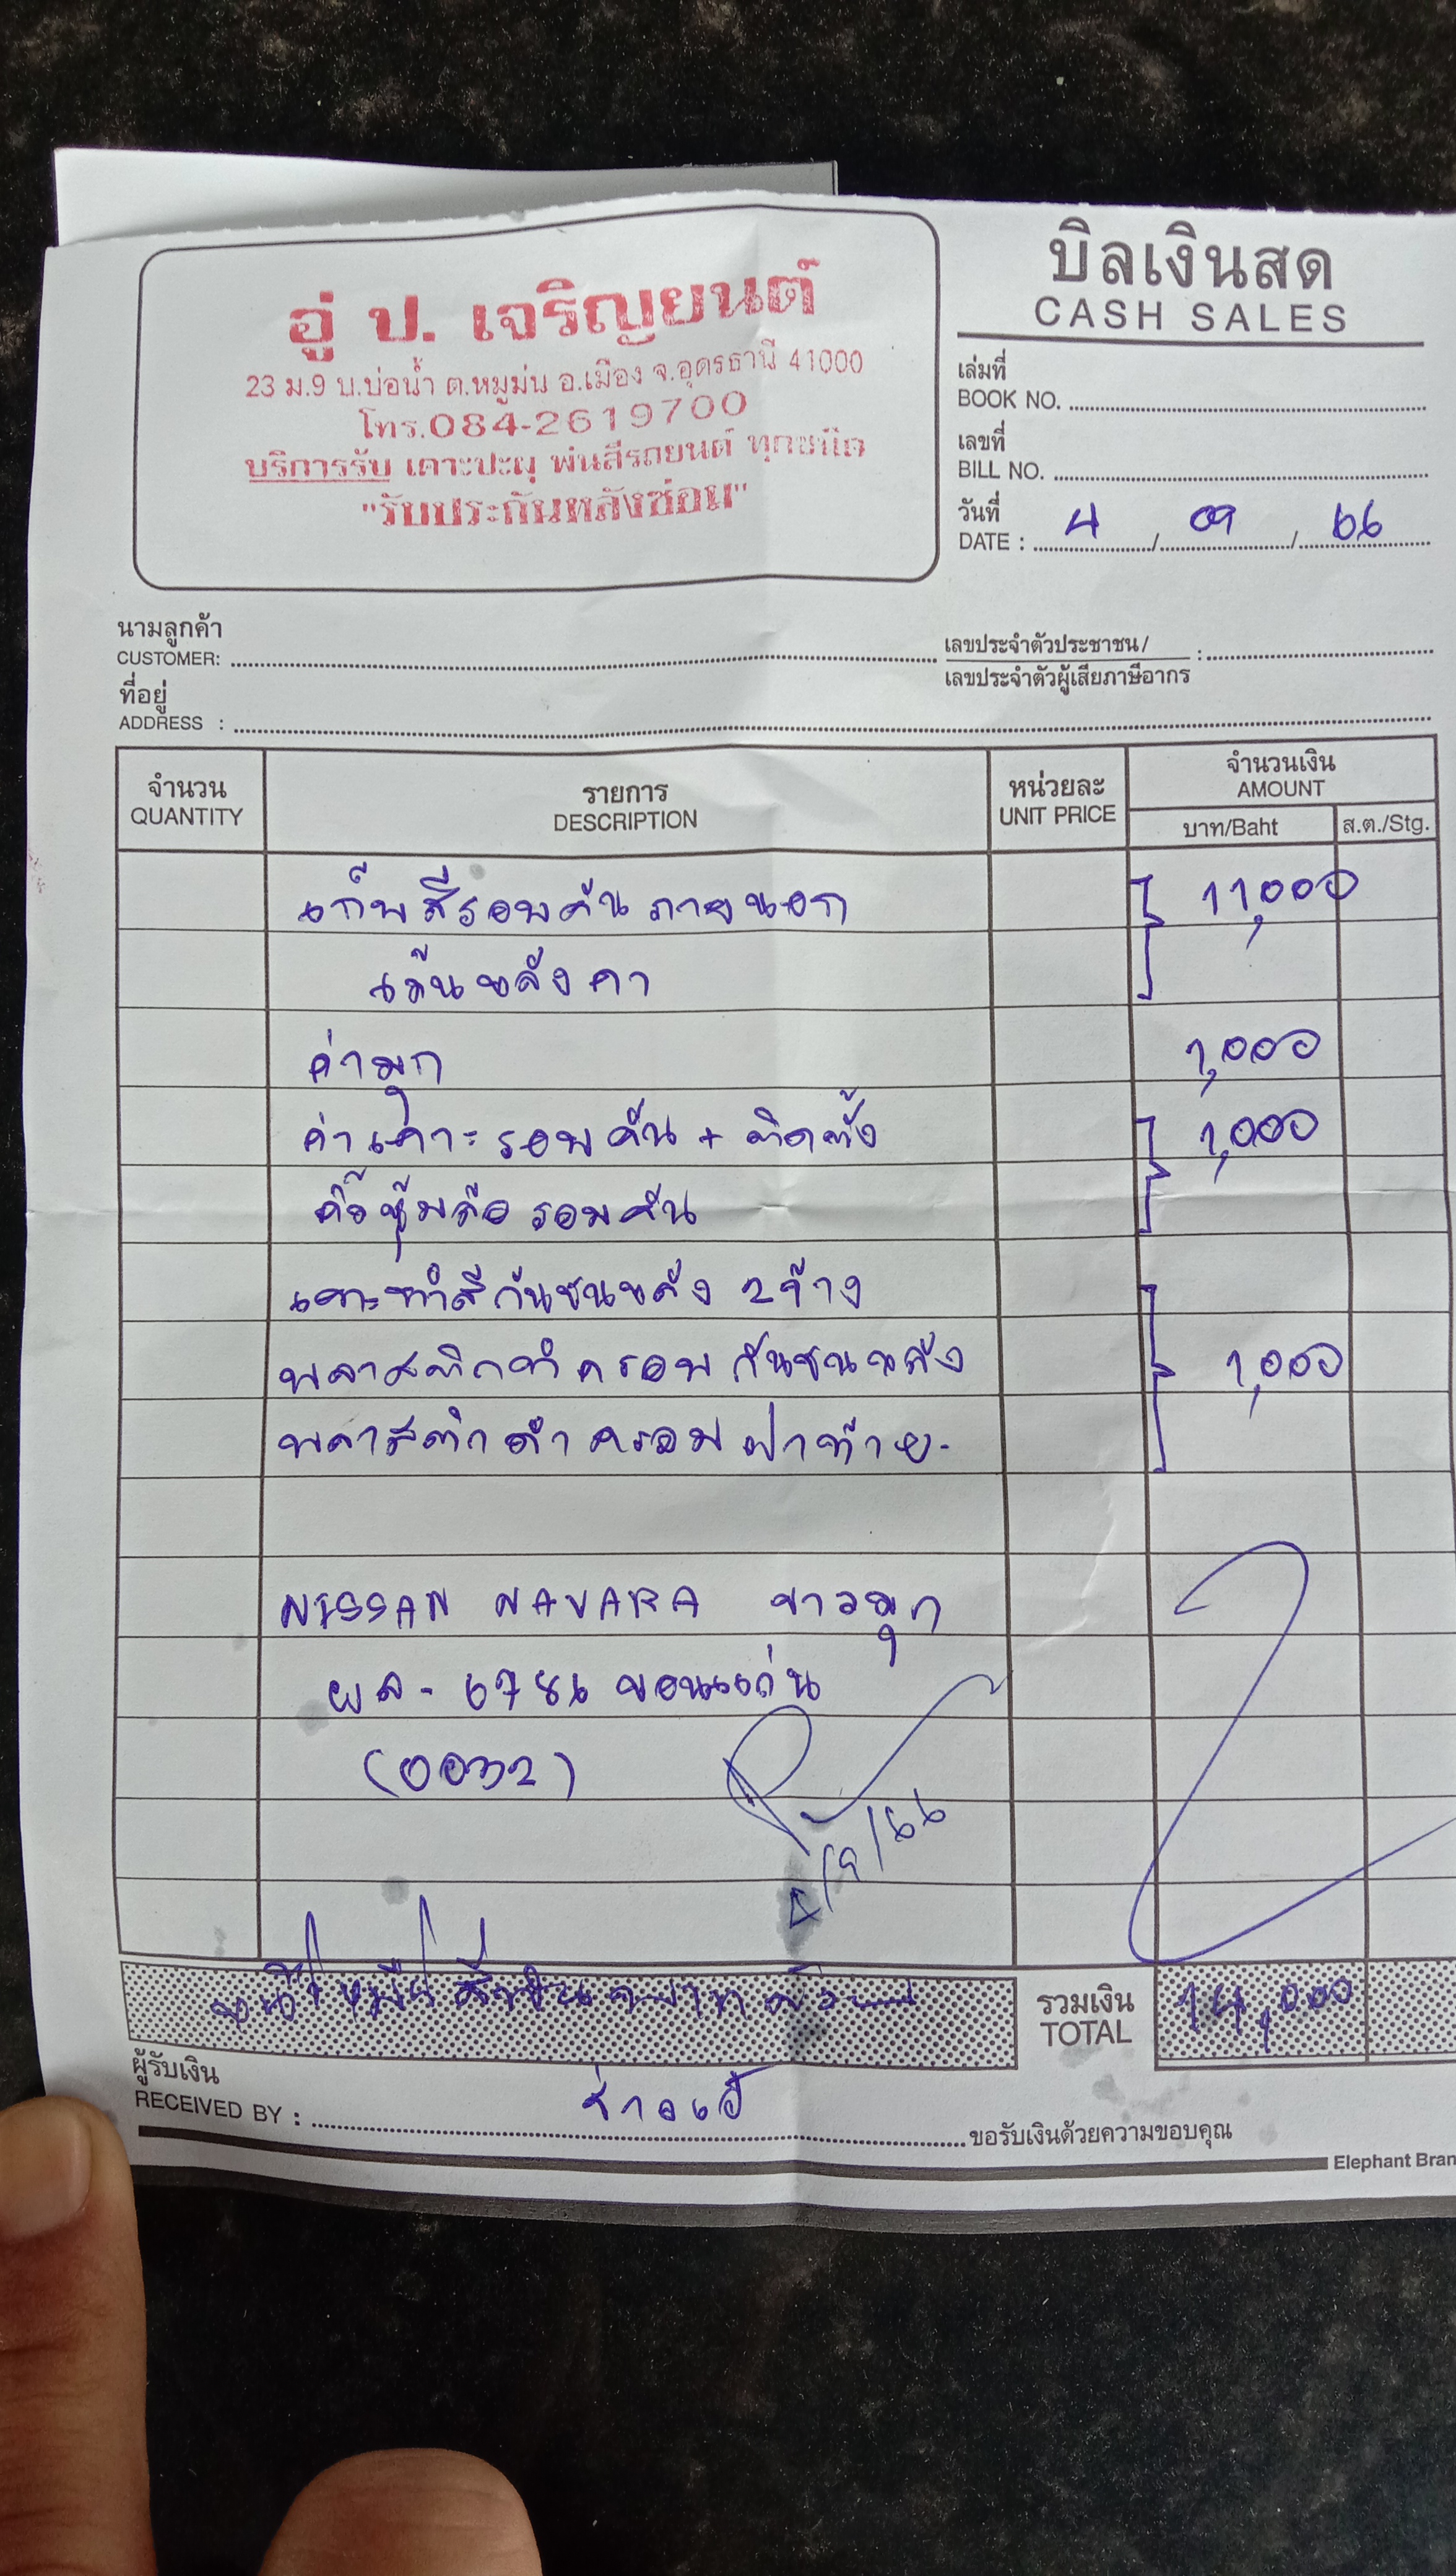 อู่ ป. เจริญยนต์
23 ม.9 บ.บ่อน้ำ ต.หมูม่น อ.เมือง จ.อุดรธานี 41000
โทร.084-2619700
บริการรับ เคาะปะผุ พ่นสีรถยนต์ ทุกชนิด
"รับประกันหลังซ่อม"
บิลเงินสด
CASH SALES
เล่มที่
BOOK NO.
เลขที่
BILL NO.
วันที่
DATE : 4 / 09 / 66
นามลูกค้า
CUSTOMER:
เลขประจำตัวประชาชน/
เลขประจำตัวผู้เสียภาษีอากร :
ที่อยู่
ADDRESS :
จำนวน
QUANTITY
รายการ
DESCRIPTION
หน่วยละ
UNIT PRICE
จำนวนเงิน
AMOUNT
บาท/Baht ส.ต./Stg.
เก็บสีรอบคันภายนอก 11,000
เว้นหลังคา
ค่ามุก 1,000
ค่าเคาะรอบคัน + ติดตั้ง 1,000
คิ้วซุ้มล้อรอบคัน
เคาะทำสีกันชนหลัง 2 ข้าง
พลาสติกดำครอบกันชนหลัง 1,000
พลาสติกดำครอบฝาท้าย
NISSAN NAVARA ขาวมุก
ผล - 6786 ขอนแก่น
(0032)
4/9/66
หนึ่งหมื่นสี่พันบาทถ้วน
รวมเงิน
TOTAL
14,000
ผู้รับเงิน
RECEIVED BY :
ขอรับเงินด้วยความขอบคุณ
Elephant Bran